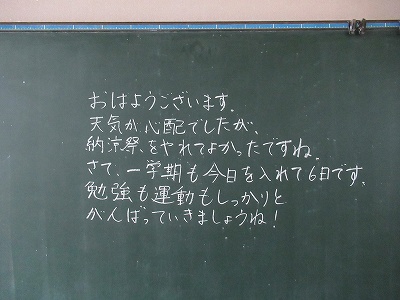 おはようございます。
天気が心配でしたが、
納涼祭、をやれてよかったですね。
さて、一学期も今日を入れて6日です。
勉強も運動もしっかりと
がんばっていきましょうね！